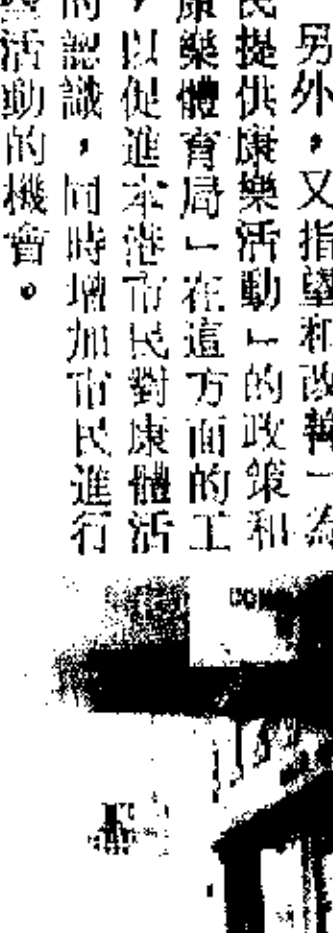 另外，又指望和改輯「為
民提供康樂活動」的政策和
康樂體育局」在這方面的工
，以促進本港市民對康體活
的認識，同時增加市民進行
活動的機會。